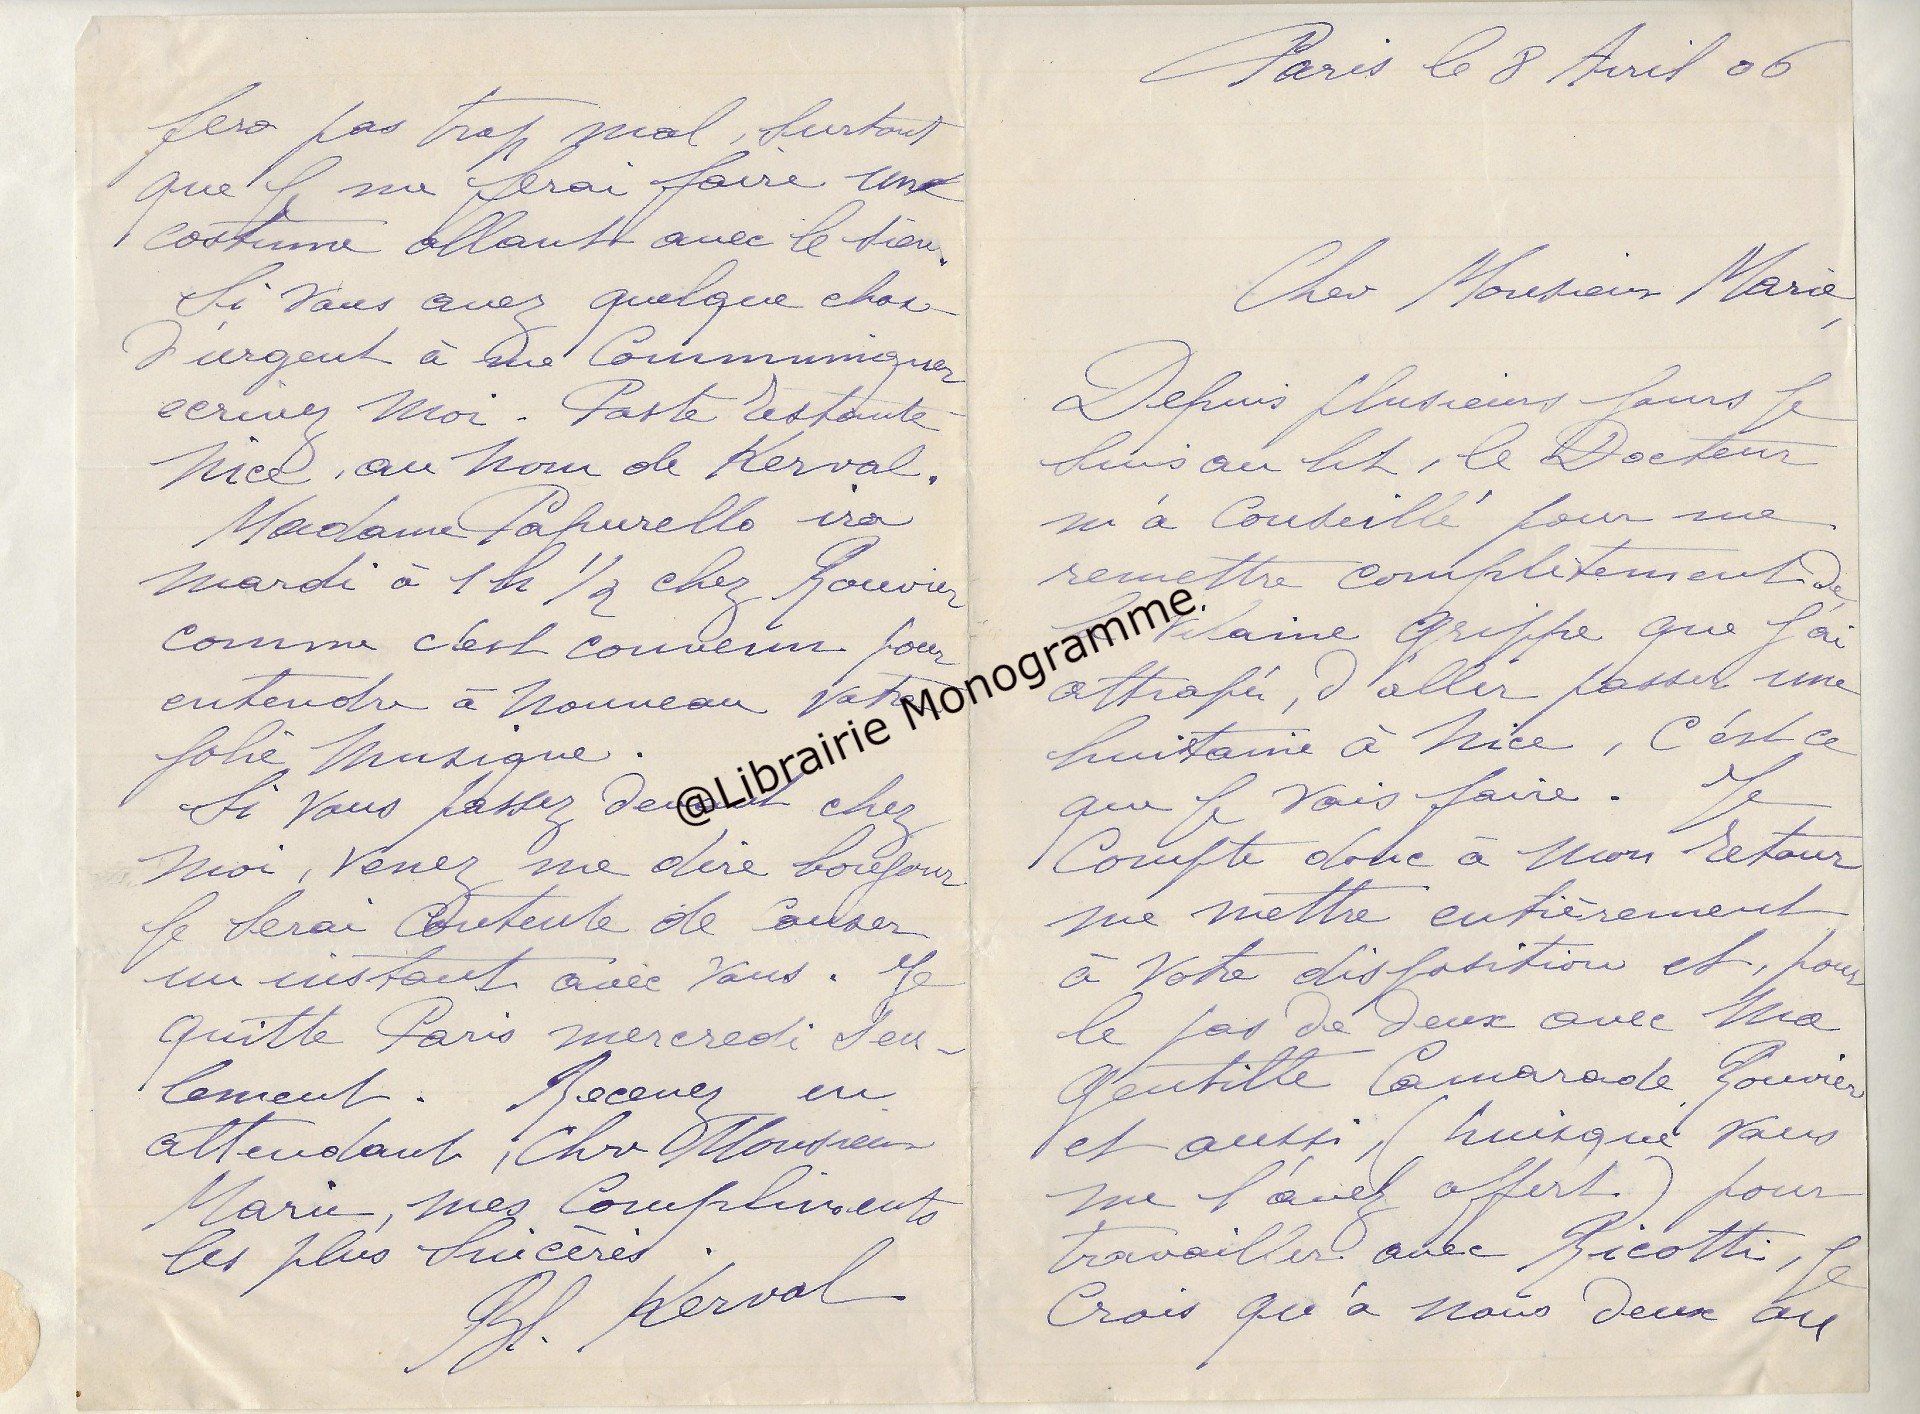 Paris le 8 Avril 06
Cher Monsieur Marié,
Depuis plusieurs jours je
suis au lit, le Docteur
m'a conseillé pour me
remettre complètement de
vilaine grippe que j'ai
attrapée, d'aller passer une
huitaine à Nice, c'est ce
que je vais faire. Je
compte donc à mon retour
me mettre entièrement
à votre disposition et, pour
le pas de deux avec ma
gentille camarade Rouvier
et aussi, (puisque vous
me l'avez offert) pour
travailler avec Ricotti, je
crois qu'à nous deux on
fera pas trop mal, surtout
que je me ferai faire une
costume allant avec le sien.
Si vous avez quelque chose
d'urgent à me communiquer
ecrivez moi. Poste restante
Nice, au nom de Kerval.
Madame Papurello ira
mardi à 1h 1/2 chez Rouvier
comme c'est convenu pour
entendre à nouveau votre
jolie musique.
Si vous passez devant chez
moi, venez me dire bonjour
je serai contente de causer
un instant avec vous. Je
quitte Paris mercredi seu-
lement. Recevez en
attendant, Cher Monsieur
Marié, mes compliments
les plus sincères.
Bl. Kerval
@Librairie Monogramme.